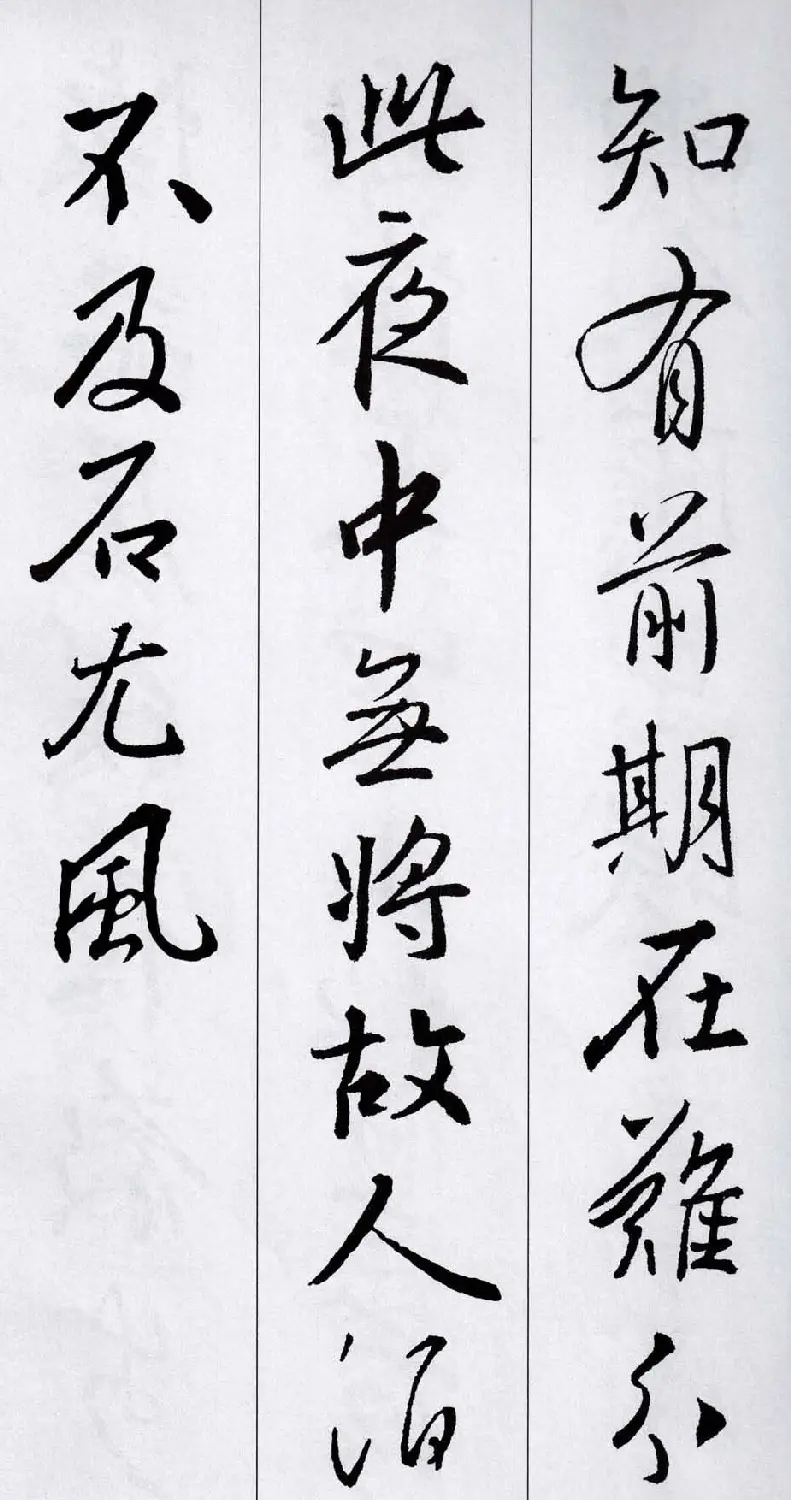 知有前期在難分
此夜中無將故人酒
不及石尤風